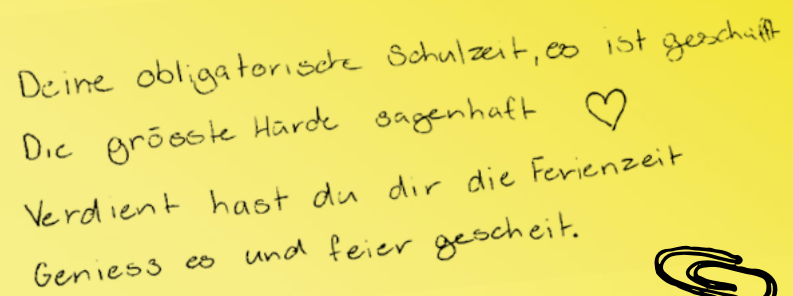 Deine obligatorische Schulzeit, es ist geschafft
Die grösste Hürde sagenhaft ♡
Verdient hast du dir die Ferienzeit
Geniess es und feier gescheit.